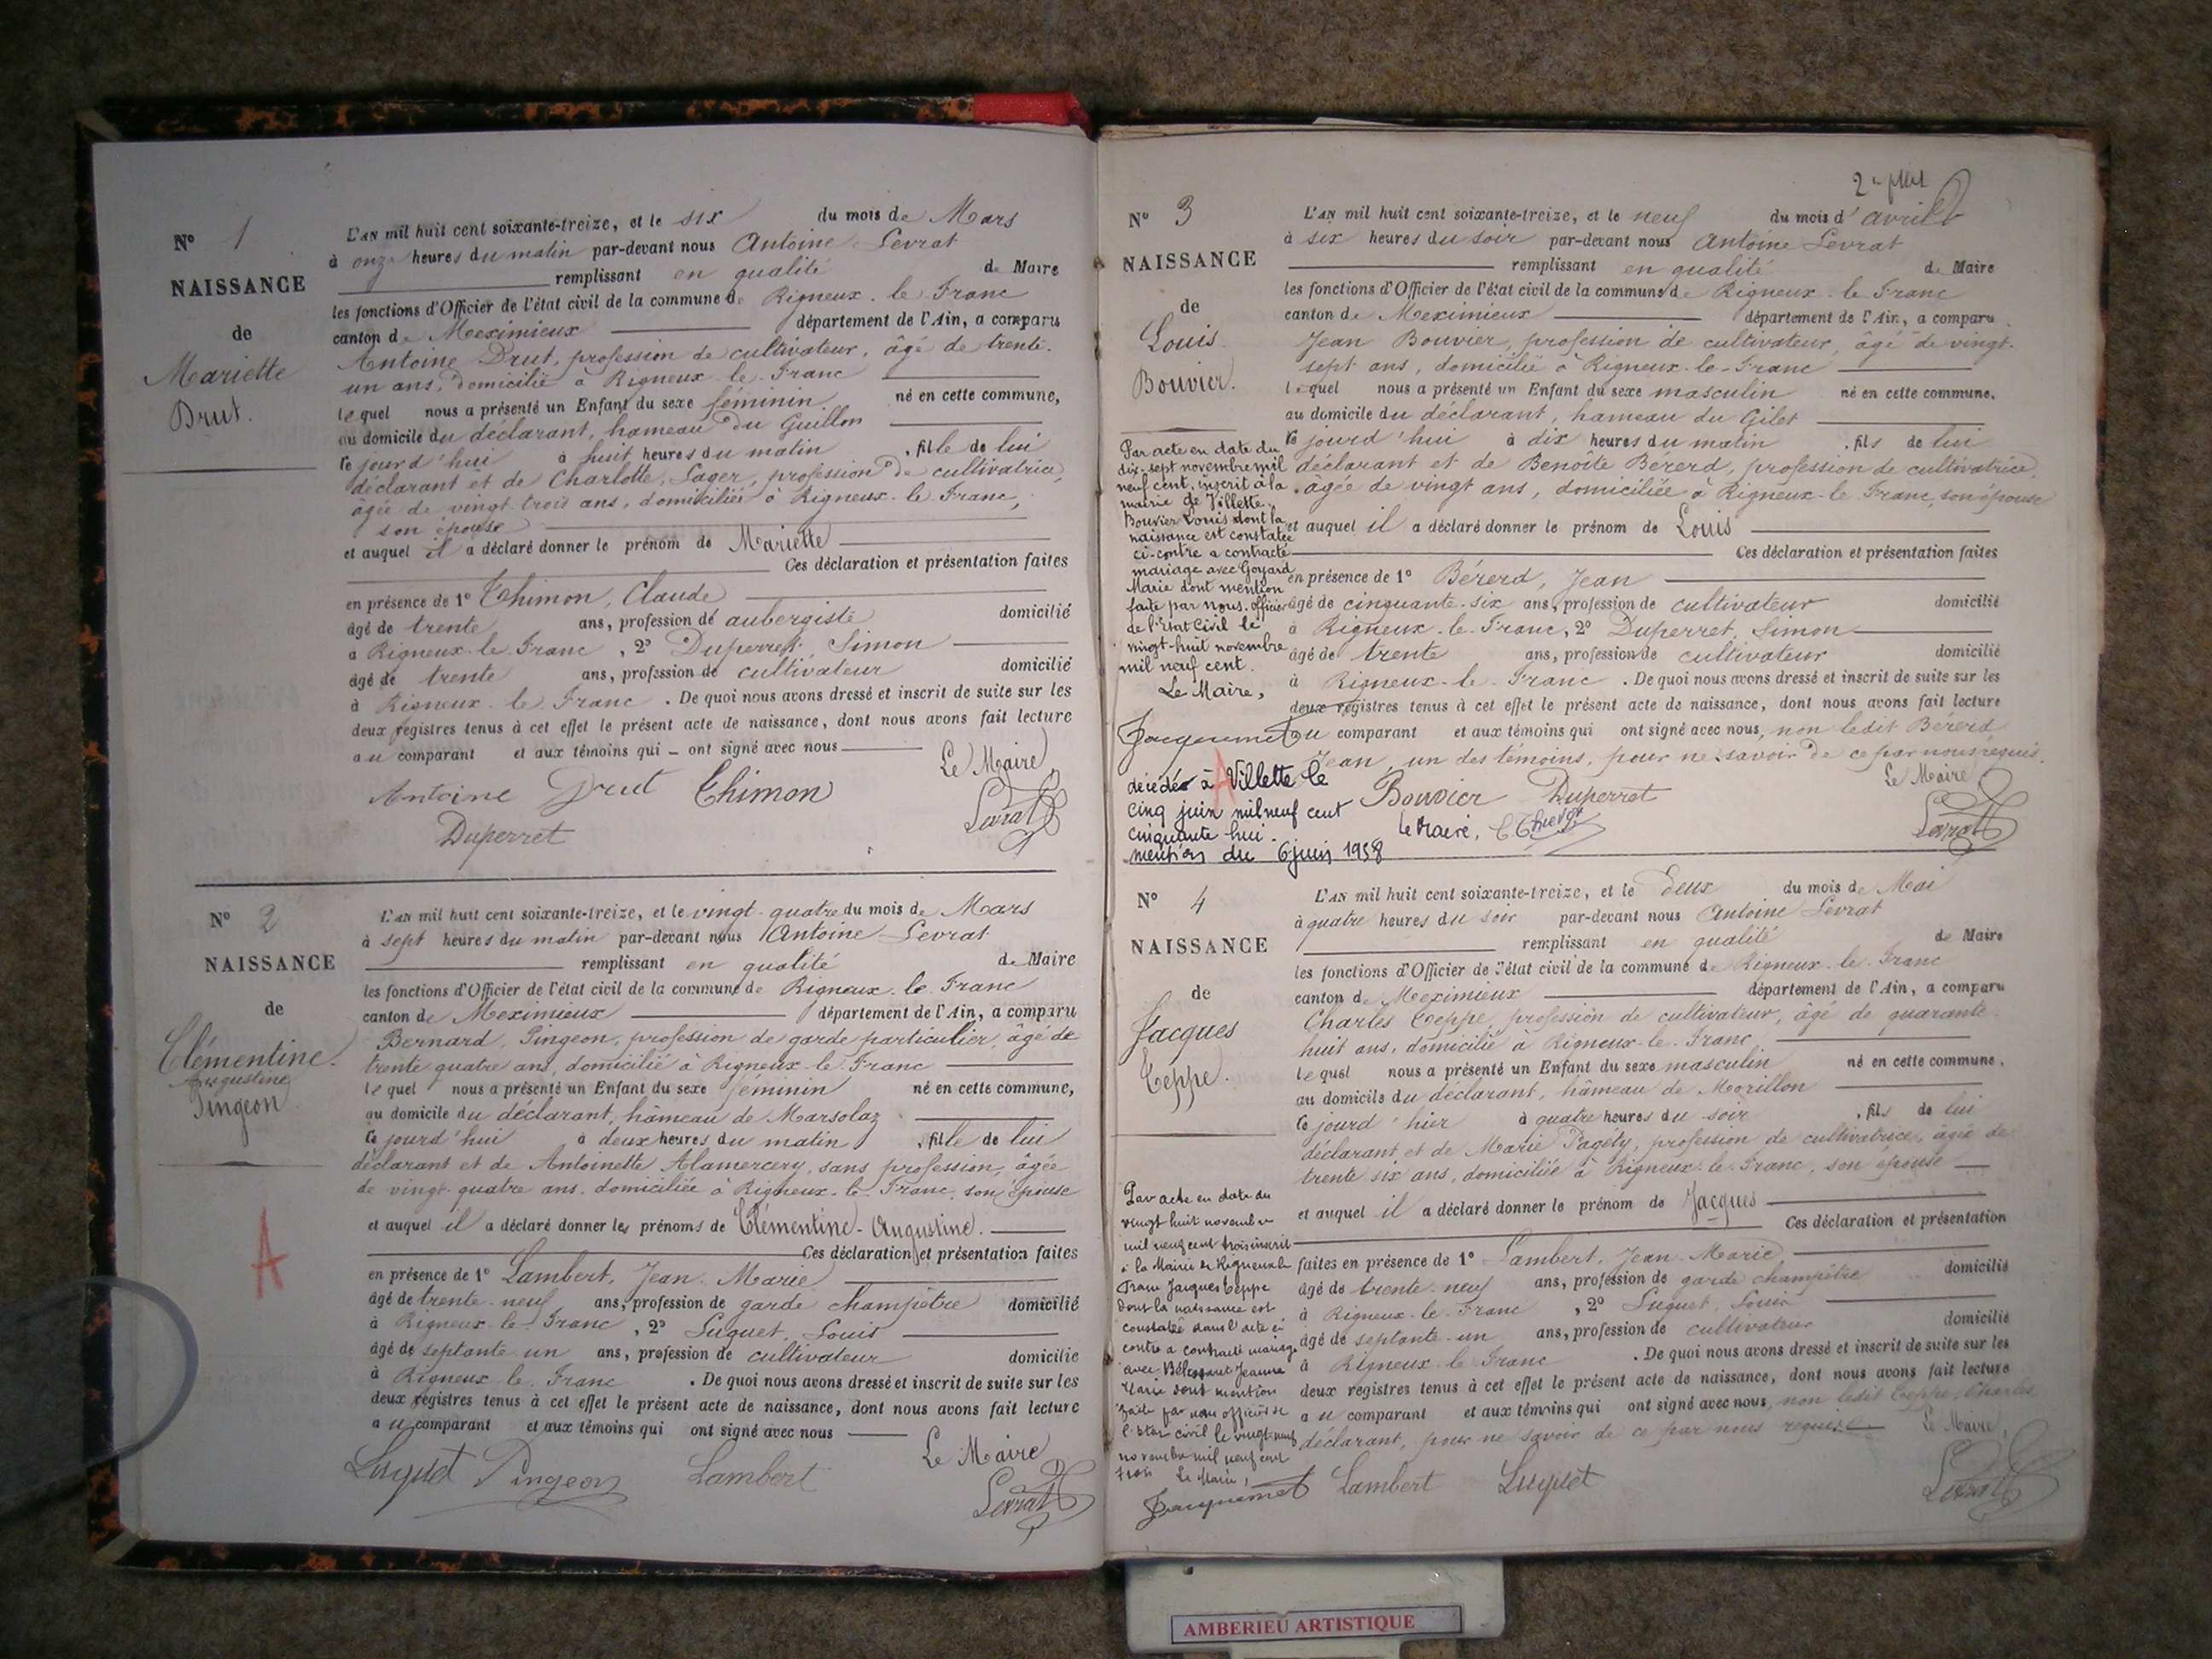 Nº 1
NAISSANCE
de
Mariette
Drut.
L'AN mil huit cent soixante-treize, et le six du mois de Mars
à onze heures du matin par-devant nous Antoine Levrat
remplissant en qualité de Maire
les fonctions d'Officier de l'état civil de la commune de Rigneux-le-Franc
canton de Meximieux département de l'Ain, a comparu
Antoine Drut, profession de cultivateur, âgé de trente-
un ans, domicilié à Rigneux-le-Franc
lequel nous a présenté un Enfant du sexe féminin né en cette commune,
au domicile du déclarant, hameau du Guillon
ce jourd'hui à huit heures du matin, fille de lui
déclarant et de Charlotte Lager, profession de cultivatrice,
âgée de vingt-trois ans, domiciliée à Rigneux-le-Franc,
son épouse
et auquel il a déclaré donner le prénom de Mariette
Ces déclaration et présentation faites
en présence de 1º Thimon, Claude
âgé de trente ans, profession de aubergiste domicilié
à Rigneux-le-Franc, 2º Duperret, Simon
âgé de trente ans, profession de cultivateur domicilié
à Rigneux-le-Franc. De quoi nous avons dressé et inscrit de suite sur les
deux registres tenus à cet effet le présent acte de naissance, dont nous avons fait lecture
au comparant et aux témoins qui – ont signé avec nous
Le Maire
Antoine Drut Thimon
Duperret
Levrat
Nº 2
NAISSANCE
de
Clémentine
Augustine
Pingeon
A
L'AN mil huit cent soixante-treize, et le vingt-quatre du mois de Mars
à sept heures du matin par-devant nous Antoine Levrat
remplissant en qualité de Maire
les fonctions d'Officier de l'état civil de la commune de Rigneux-le-Franc
canton de Meximieux département de l'Ain, a comparu
Bernard Pingeon, profession de garde particulier, âgé de
trente quatre ans, domicilié à Rigneux-le-Franc
lequel nous a présenté un Enfant du sexe féminin né en cette commune,
au domicile du déclarant, hâmeau de Marsolaz
ce jourd'hui à deux heures du matin, fille de lui
déclarant et de Antoinette Alamercery, sans profession, âgée
de vingt-quatre ans, domiciliée à Rigneux-le-Franc, son épouse
et auquel il a déclaré donner les prénoms de Clémentine-Augustine.
Ces déclaration et présentation faites
en présence de 1º Lambert, Jean-Marie
âgé de trente-neuf ans, profession de garde champêtre domicilié
à Rigneux-le-Franc, 2º Luquet, Louis
âgé de septante-un ans, profession de cultivateur domicilié
à Rigneux-le-Franc. De quoi nous avons dressé et inscrit de suite sur les
deux registres tenus à cet effet le présent acte de naissance, dont nous avons fait lecture
au comparant et aux témoins qui ont signé avec nous
Le Maire
Luquet Pingeon Lambert
Levrat
Nº 3
NAISSANCE
de
Louis
Bouvier.
L'AN mil huit cent soixante-treize, et le neuf du mois d'avril
à six heures du soir par-devant nous Antoine Levrat
remplissant en qualité de Maire
les fonctions d'Officier de l'état civil de la commune de Rigneux-le-Franc
canton de Meximieux département de l'Ain, a comparu
Jean Bouvier, profession de cultivateur, âgé de vingt-
sept ans, domicilié à Rigneux-le-Franc
lequel nous a présenté un Enfant du sexe masculin né en cette commune,
au domicile du déclarant, hameau du Gilet
ce jourd'hui à dix heures du matin, fils de lui
déclarant et de Benoîte Bérerd, profession de cultivatrice,
âgée de vingt ans, domiciliée à Rigneux-le-Franc, son épouse
et auquel il a déclaré donner le prénom de Louis
Ces déclaration et présentation faites
en présence de 1º Bérerd, Jean
âgé de cinquante-six ans, profession de cultivateur domicilié
à Rigneux-le-Franc, 2º Duperret, Simon
âgé de trente ans, profession de cultivateur domicilié
à Rigneux-le-Franc. De quoi nous avons dressé et inscrit de suite sur les
deux registres tenus à cet effet le présent acte de naissance, dont nous avons fait lecture
au comparant et aux témoins qui ont signé avec nous, non ledit Bérerd
Jean, un des témoins, pour ne savoir de ce par nous requis.
Le Maire
Bouvier Duperret
Levrat
Par acte en date du
dix-sept novembre mil
neuf cent, inscrit à la
mairie de Villette,
Bouvier Louis dont la
naissance est constatée
ci-contre a contracté
mariage avec Goyard
Marie dont mention
faite par nous, officier
de l'Etat Civil le
vingt-huit novembre
mil neuf cent.
Le Maire,
Jacquemet
A
décédé à Villette le
cinq juin mil neuf cent
cinquante huit.
mention du 6 juin 1958
le Maire,
Nº 4
NAISSANCE
de
Jacques
Teppe.
L'AN mil huit cent soixante-treize, et le deux du mois de Mai
à quatre heures du soir par-devant nous Antoine Levrat
remplissant en qualité de Maire
les fonctions d'Officier de l'état civil de la commune de Rigneux-le-Franc
canton de Meximieux département de l'Ain, a comparu
Charles Teppe, profession de cultivateur, âgé de quarante-
huit ans, domicilié à Rigneux-le-Franc
lequel nous a présenté un Enfant du sexe masculin né en cette commune,
au domicile du déclarant, hâmeau de Morillon
ce jourd'hier à quatre heures du soir, fils de lui
déclarant et de Marie Pagéty, profession de cultivatrice, âgée de
trente six ans, domiciliée à Rigneux-le-Franc, son épouse
et auquel il a déclaré donner le prénom de Jacques
Ces déclaration et présentation
faites en présence de 1º Lambert, Jean-Marie
âgé de trente-neuf ans, profession de garde champêtre domicilié
à Rigneux-le-Franc, 2º Luquet, Louis
âgé de septante-un ans, profession de cultivateur domicilié
à Rigneux-le-Franc. De quoi nous avons dressé et inscrit de suite sur les
deux registres tenus à cet effet le présent acte de naissance, dont nous avons fait lecture
au comparant et aux témoins qui ont signé avec nous, non ledit Teppe, Charles
déclarant, pour ne savoir de ce par nous requis.
Le Maire,
Lambert Luquet
Levrat
Par acte en date du
vingt huit novembre
mil neuf cent trois inscrit
à la Mairie de Rigneux le
Franc Jacques Teppe
dont la naissance est
constatée dans l'acte ci
contre a contracté mariage
avec Jeanne
Marie dont mention
faite par nous officier de
l'Etat civil le vingt-neuf
novembre mil neuf cent
trois Le Maire,
Jacquemet
AMBERIEU ARTISTIQUE